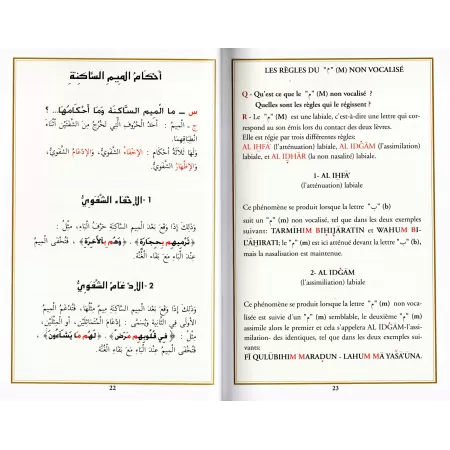 أحكام الميم الساكنة
س ـ ما الميم الساكنة وما أحكامها.. ؟
ج ـ الميم : أحد الحروف التي تخرج من الشفتين أثناء
انطباقهما.
ولها ثلاثة أحكام : الإخفاء الشفوي، والإدغام الشفوي،
والإظهار الشفوي.
1 - الإخفاء الشفوي
وذلك إذا وقع بعد الميم الساكنة حرف الباء، مثل :
﴿ترميهم بحجارة﴾، ﴿وهم بالآخرة﴾، فتخفى الميم
عند الباء مع بقاء الغنة.
2 - الإدغام الشفوي
وذلك إذا وقع بعد الميم الساكنة ميم مثلها، فتدغم الميم
الأولى في الثانية ويسمى : إدغام المتماثلين، أو المثلين،
مثل : ﴿في قلوبهم مرض﴾، ﴿لهم ما يشاءون﴾،
22
LES RÈGLES DU "مْ" (M) NON VOCALISÉ
Q - Qu'est ce que le "مْ" (M) non vocalisé ?
Quelles sont les règles qui le régissent ?
R - Le "مْ" (m) est une labiale, c'est-à-dire une lettre qui cor-
respond au son émis lors du contact des deux lèvres.
Elle est régie par trois différentes règles:
AL IḪFA' (l'atténuation) labiale, AL IDĠĀM (l'assimilation)
labiale, et AL IḎHĀR (la non nasalité) labiale.
1- AL IḪFA'
(l'atténuation) labiale
Ce phénomène se produit lorsque la lettre "ب" (b)
suit un "مْ" (m) non vocalisé, tel que dans les deux exemples
suivant: TARMĪHIM BIḤIJĀRATIN et WAHUM BI-
L'AḪIRATI; le "مْ" (m) est ici atténué devant la lettre "ب" (b),
mais la nasalisation est maintenue.
2- AL IDĠĀM
(l'assimiliation) labiale
Ce phénomène se produit lorsque la lettre "مْ" (m) non voca-
lisée est suivie d'un "م" (m) semblable, le deuxième "م" (m)
assimile alors le premier et cela s'appelera AL IDĠĀM-l'assi-
milation- des identiques, tel que dans les deux exemples sui-
vants:
FĪ QULŪBIHIM MARAḌUN - LAHUM MĀ YAŠĀ'UNA.
23